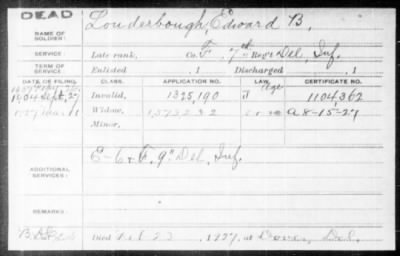 DEAD
NAME OF SOLDIER: Louderbough, Edward B.
SERVICE: Late rank, Co. F, 7th Reg't Del. Inf.
TERM OF SERVICE: Enlisted , 1 Discharged , 1
DATE OF FILING. CLASS. APPLICATION NO. LAW. CERTIFICATE NO.
1904 Sept. 27 Invalid, 1325,190 J Age 1104,362
Widow, A 8-15-27
Minor,
ADDITIONAL SERVICES: E-6 & F. 9" Del. Inf.
REMARKS:
Died Feb 23, 1927, at Dover, Del.